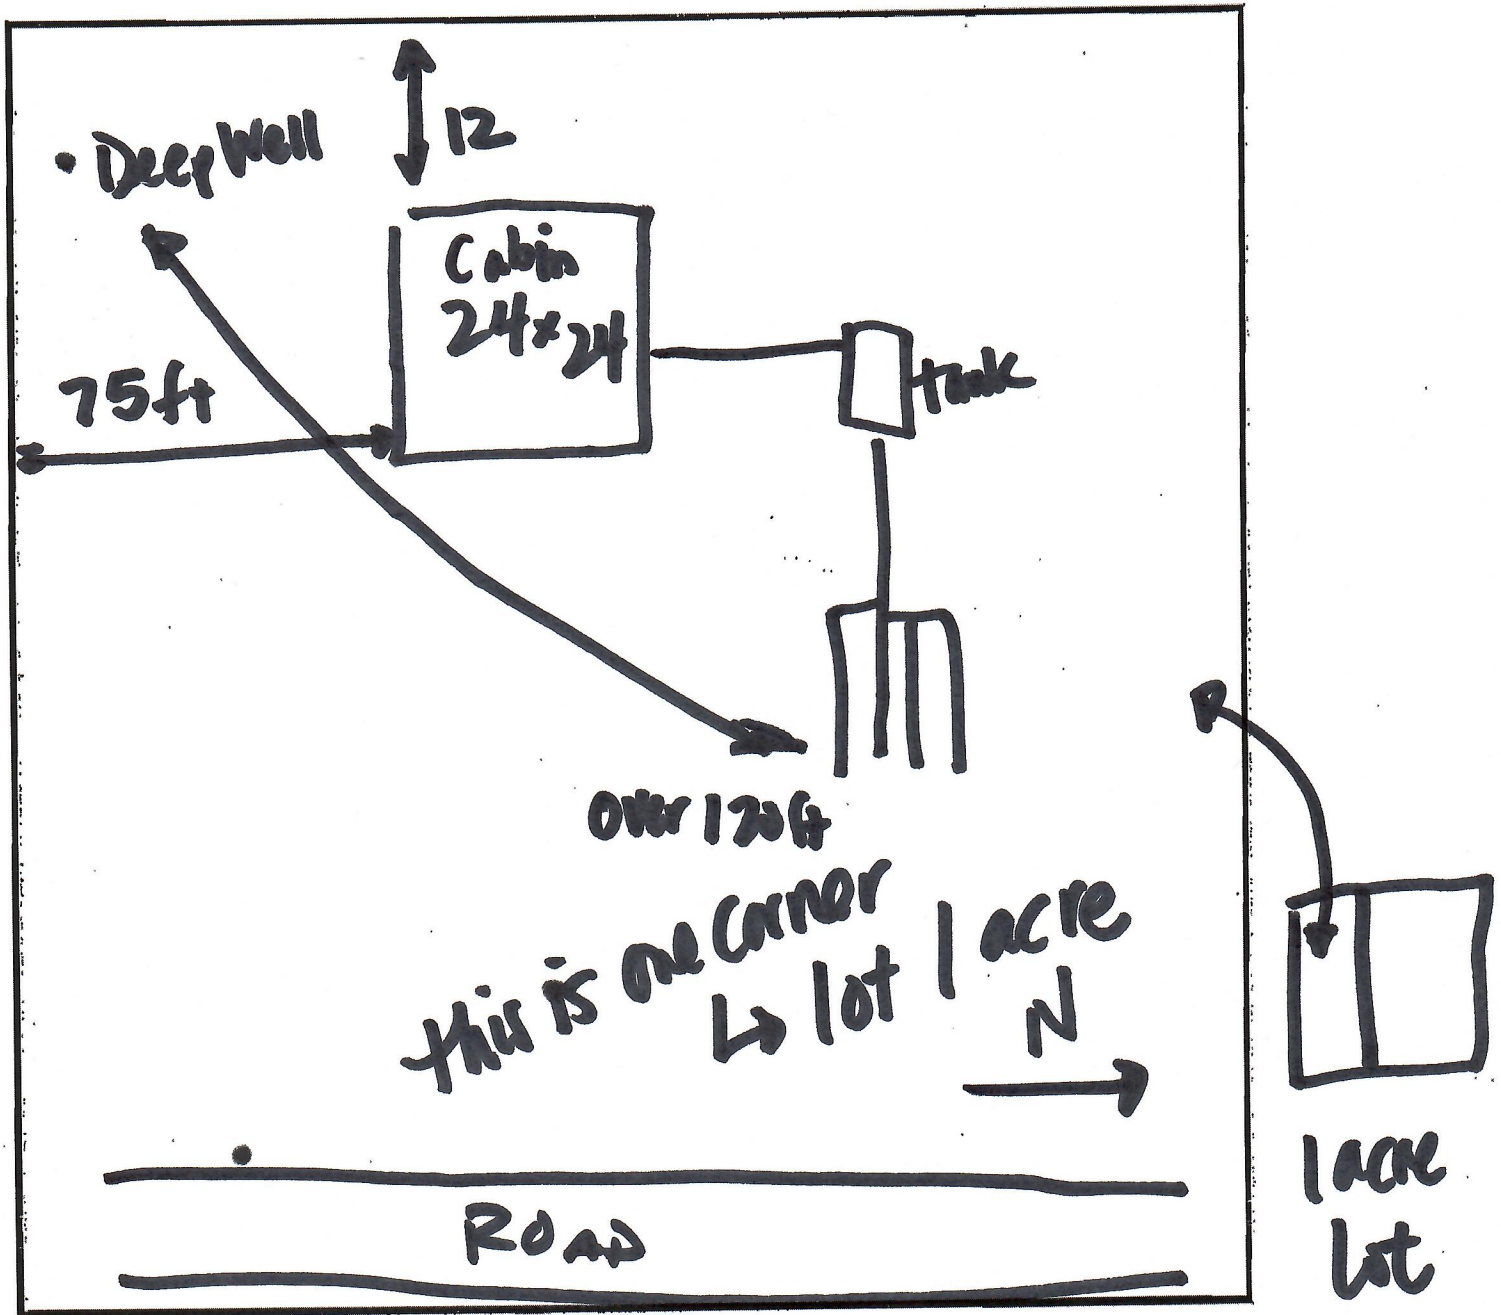 12
• Deep Well
Cabin
24x24
75ft
tank
over 120ft
this is one corner
↳ lot 1 acre
N
ROAD
1 acre
lot